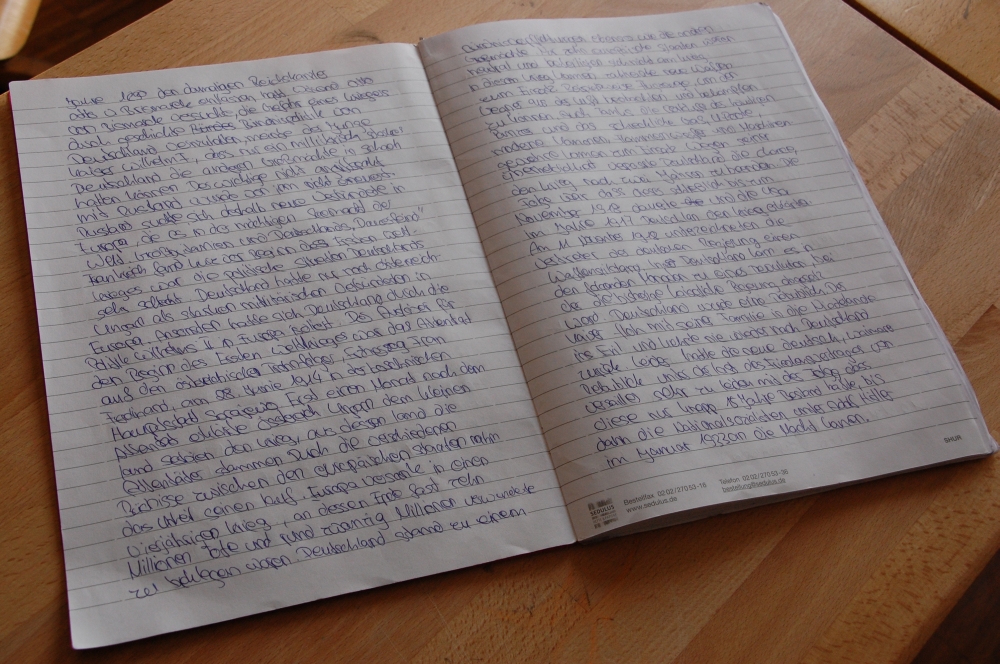 Jahre 1890 den damaligen Reichskanzler
Otto v Bismarck entlassen hatte. Obwohl Otto
von Bismarck versuchte, die Gefahr eines Krieges
durch geschickte Bündnispolitik von
Deutschland
Kaiser Wilhelm II, dass nur ein militärisch starkes
Deutschland die anderen Großmächte in Schach
halten können. Das wichtige nicht angriffspakt
mit Rusland wurde von im nicht Erneuert.
Rusland suchte sich deshalb neue Verbündete in
Europa, die es in der mächtigen Seemacht der
Welt Großbritannien und Deutschlands "Dauerfeind"
Frankreich fand. Kurz vor Beginn des Ersten Welt-
krieges war die politische Situation Deutschlands
sehr schlecht. Deutschland hatte nur noch österreich-
Ungarn als starken militärischen Verbündeten in
Europa. Ansonsten hatte sich Deutschland durch die
Politik Wilhelms II in Europa isoliert. Der Auslöser für
den Beginn des Ersten Weltkrieges war das Attentat
auf den österreichischen Tronfolger Erzherzog Fran
Ferdinand, am 28. Junie 1914 in der bosnischen
Hauptstadt Sarajewo. Erst einen Monat nach dem
Attentat erklärte Österreich Ungarn dem kleinen
Land Serbien den Krieg, aus dessen Land die
Attentäter stammen. Durch die verschiedenen
Bündnisse zwischen den europäischen staaten nahm
das Urteil seinen Lauf. Europa versank in einen
Vierjährigen Krieg, an dessen Ende fast zehn
Millionen Tote und rund zwanzig Millionen verwundete
zu beklagen waren. Deutschland stand zu einem
ebenso wie die anderen
Großmächte. Für viele
neutral und beteiligten sich nicht am Krieg.
In diesem Krieg kamen zahlreiche neue Waffen
zum Einsatz. um den
Gegner aus der Luft und bekämpfen
zu können. Auch
Panzers und das schreckliche Gas. U Boote,
moderne Kanonen, und Maschinen
gewehre kamen zum Einsatz. Wegen seiner
verpasste Deutschland die chance,
den Krieg nach zwei Jahren zu beenden. Die
Folge war, dass dieser schließlich bis zum
November 1918 dauerte und die USA
im Jahre 1917 Deutschland den Krieg erklärte.
Am 11. November 1918 unterzeichneten die
Vertreter der deutschen Regierung einen
Waffenstillstand. Deutschland kam es in
den folgenden Monaten zu einer revolution bei
der die bisherige kaiserliche Regierung
ward. Deutschland wurde eine Republik. Der
Kaiser floh mit seiner Familie in die Niederlande
ins Exil und kehrte nie wieder nach Deutschland
zurück. Leider hatte die neue deutsche, weimarer
Republik unter der last des Friedensvertrages von
versailles sehr zu leiden mit der Folge dass
diese nur knapp 15 Jahre Bestand hatte, bis
dann die Nationalsozialisten unter Adolf Hitler
im Januar 1933 an die Macht kamen.
RHUR
SEDULUS
Bestellfax 02 02 / 270 53 - 16
www.sedulus.de
Telefon 02 02 / 270 53 - 36
bestellung@sedulus.de